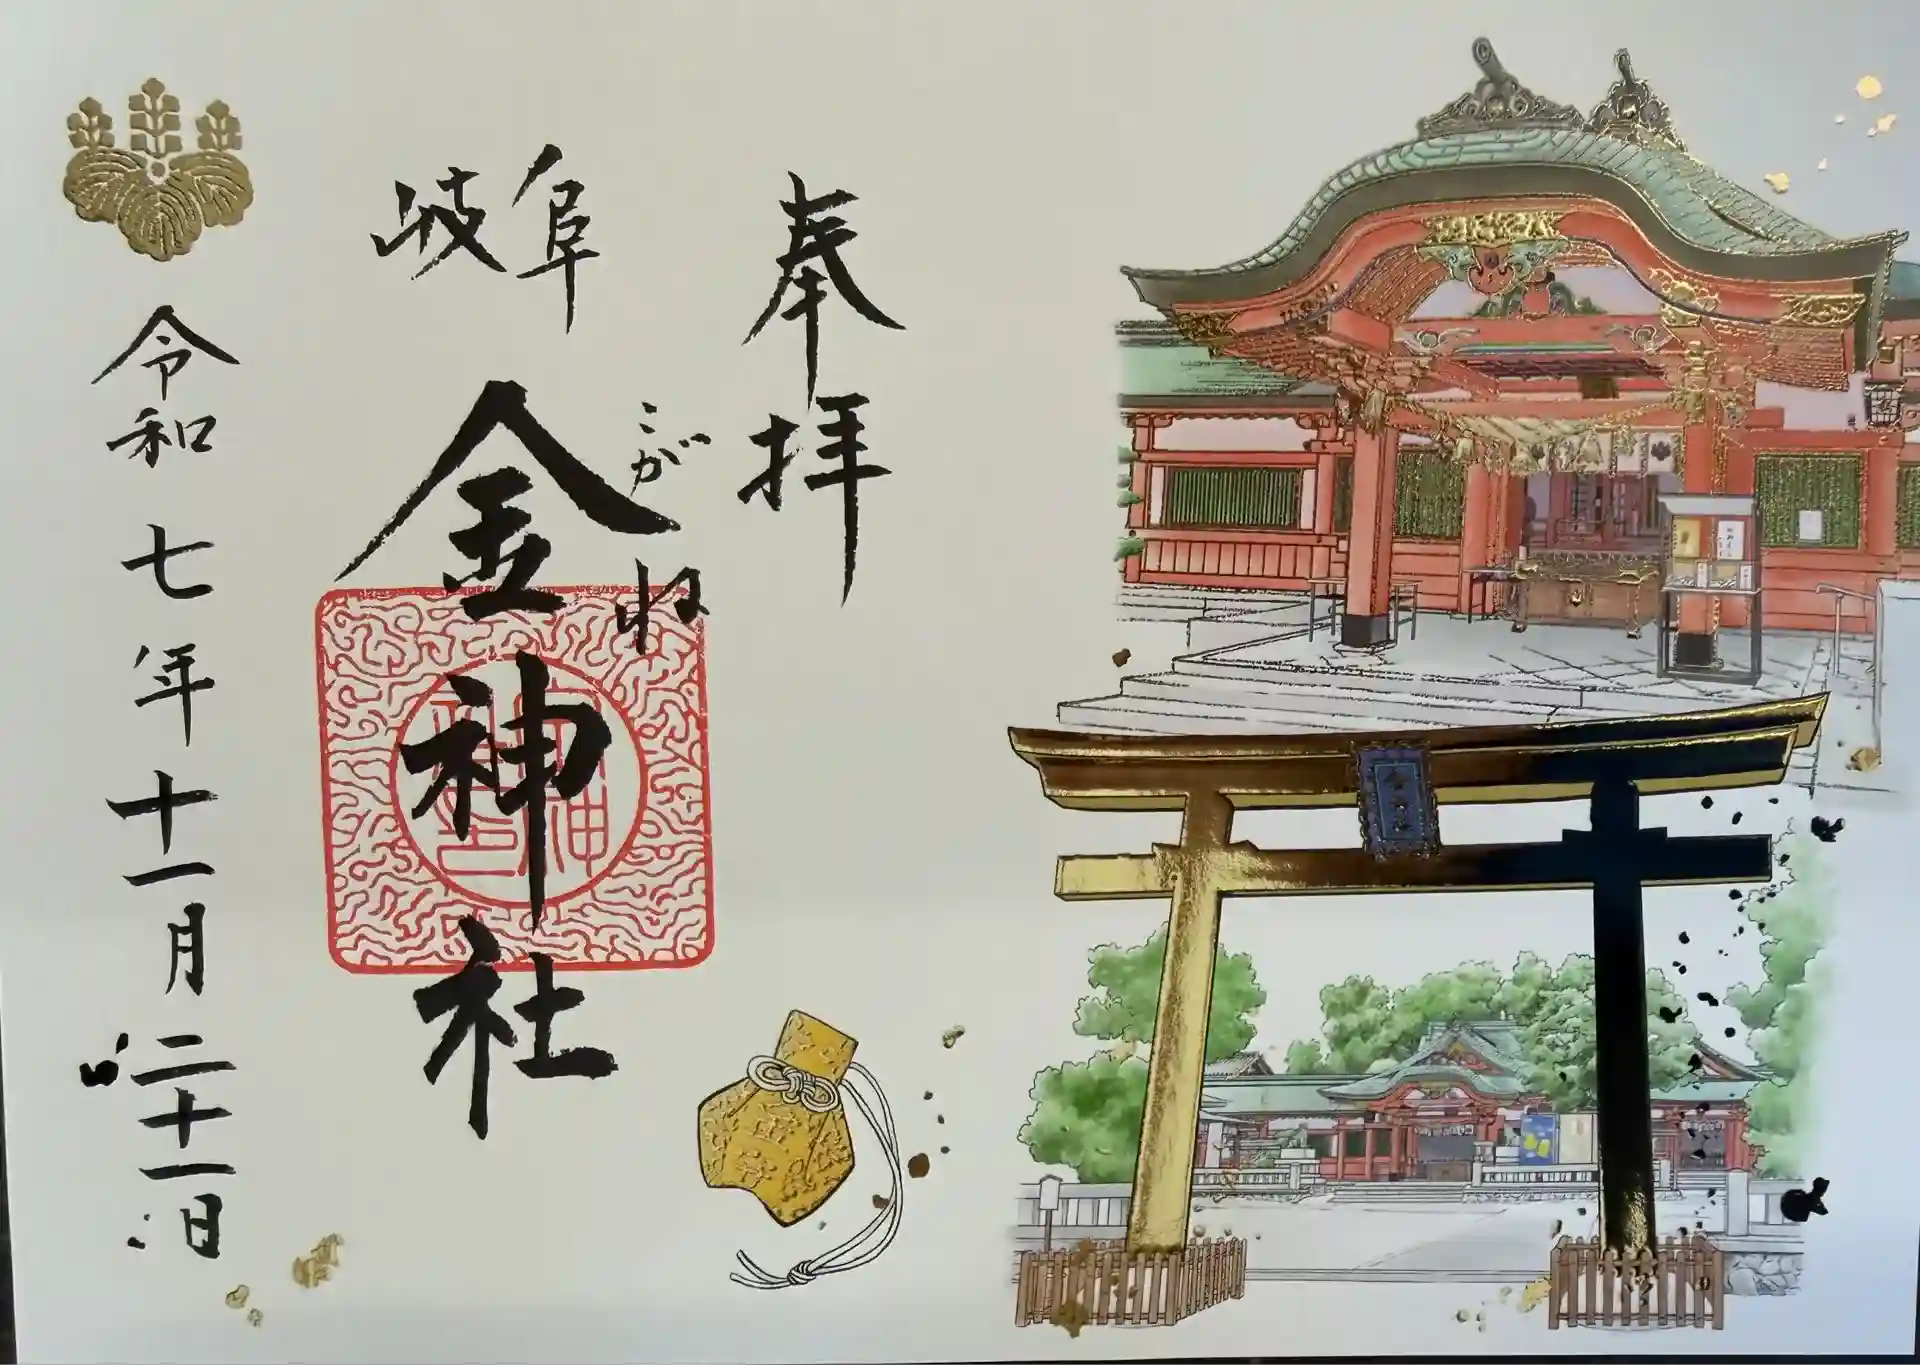 奉拝
岐阜
金神社
こがね
令和七年十一月二十一日